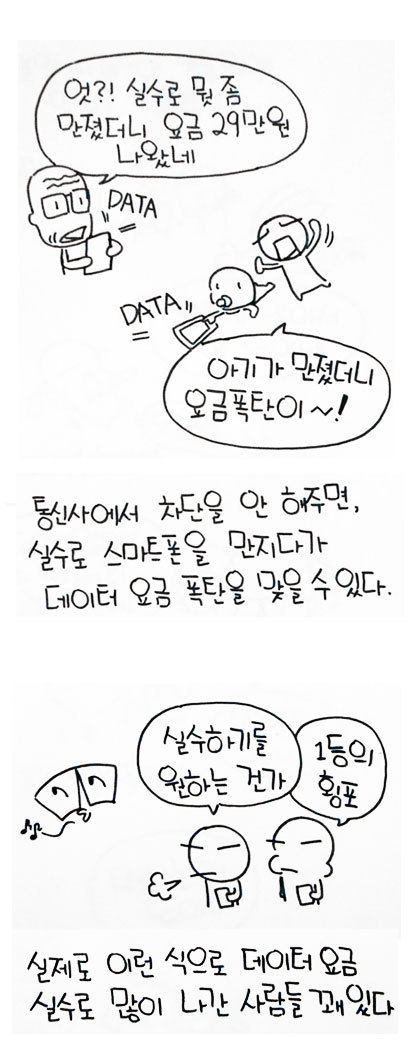 엇?! 실수로 뭣 좀
만졌더니 요금 29만원
나왔네
DATA
DATA
아기가 만졌더니
요금폭탄이~!
통신사에서 차단을 안 해주면,
실수로 스마트폰을 만지다가
데이터 요금 폭탄을 맞을 수 있다.
실수하기를
원하는 건가
1등의
횡포
실제로 이런 식으로 데이터 요금
실수로 많이 나간 사람들 꽤 있다